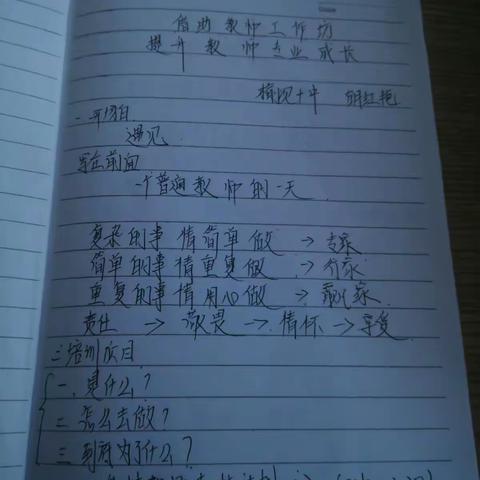 借助教师工作坊
提升教师专业成长
胡红艳
一、开场白
遇见
写在前面
一个普通教师的一天
复杂的事情简单做 → 专家
简单的事情重复做 → 行家
重复的事情用心做 → 赢家
责任 → 敬畏 → 情怀 → 享受
三培训项目
一、是什么?
二、怎么去做?
三、到底为了什么?